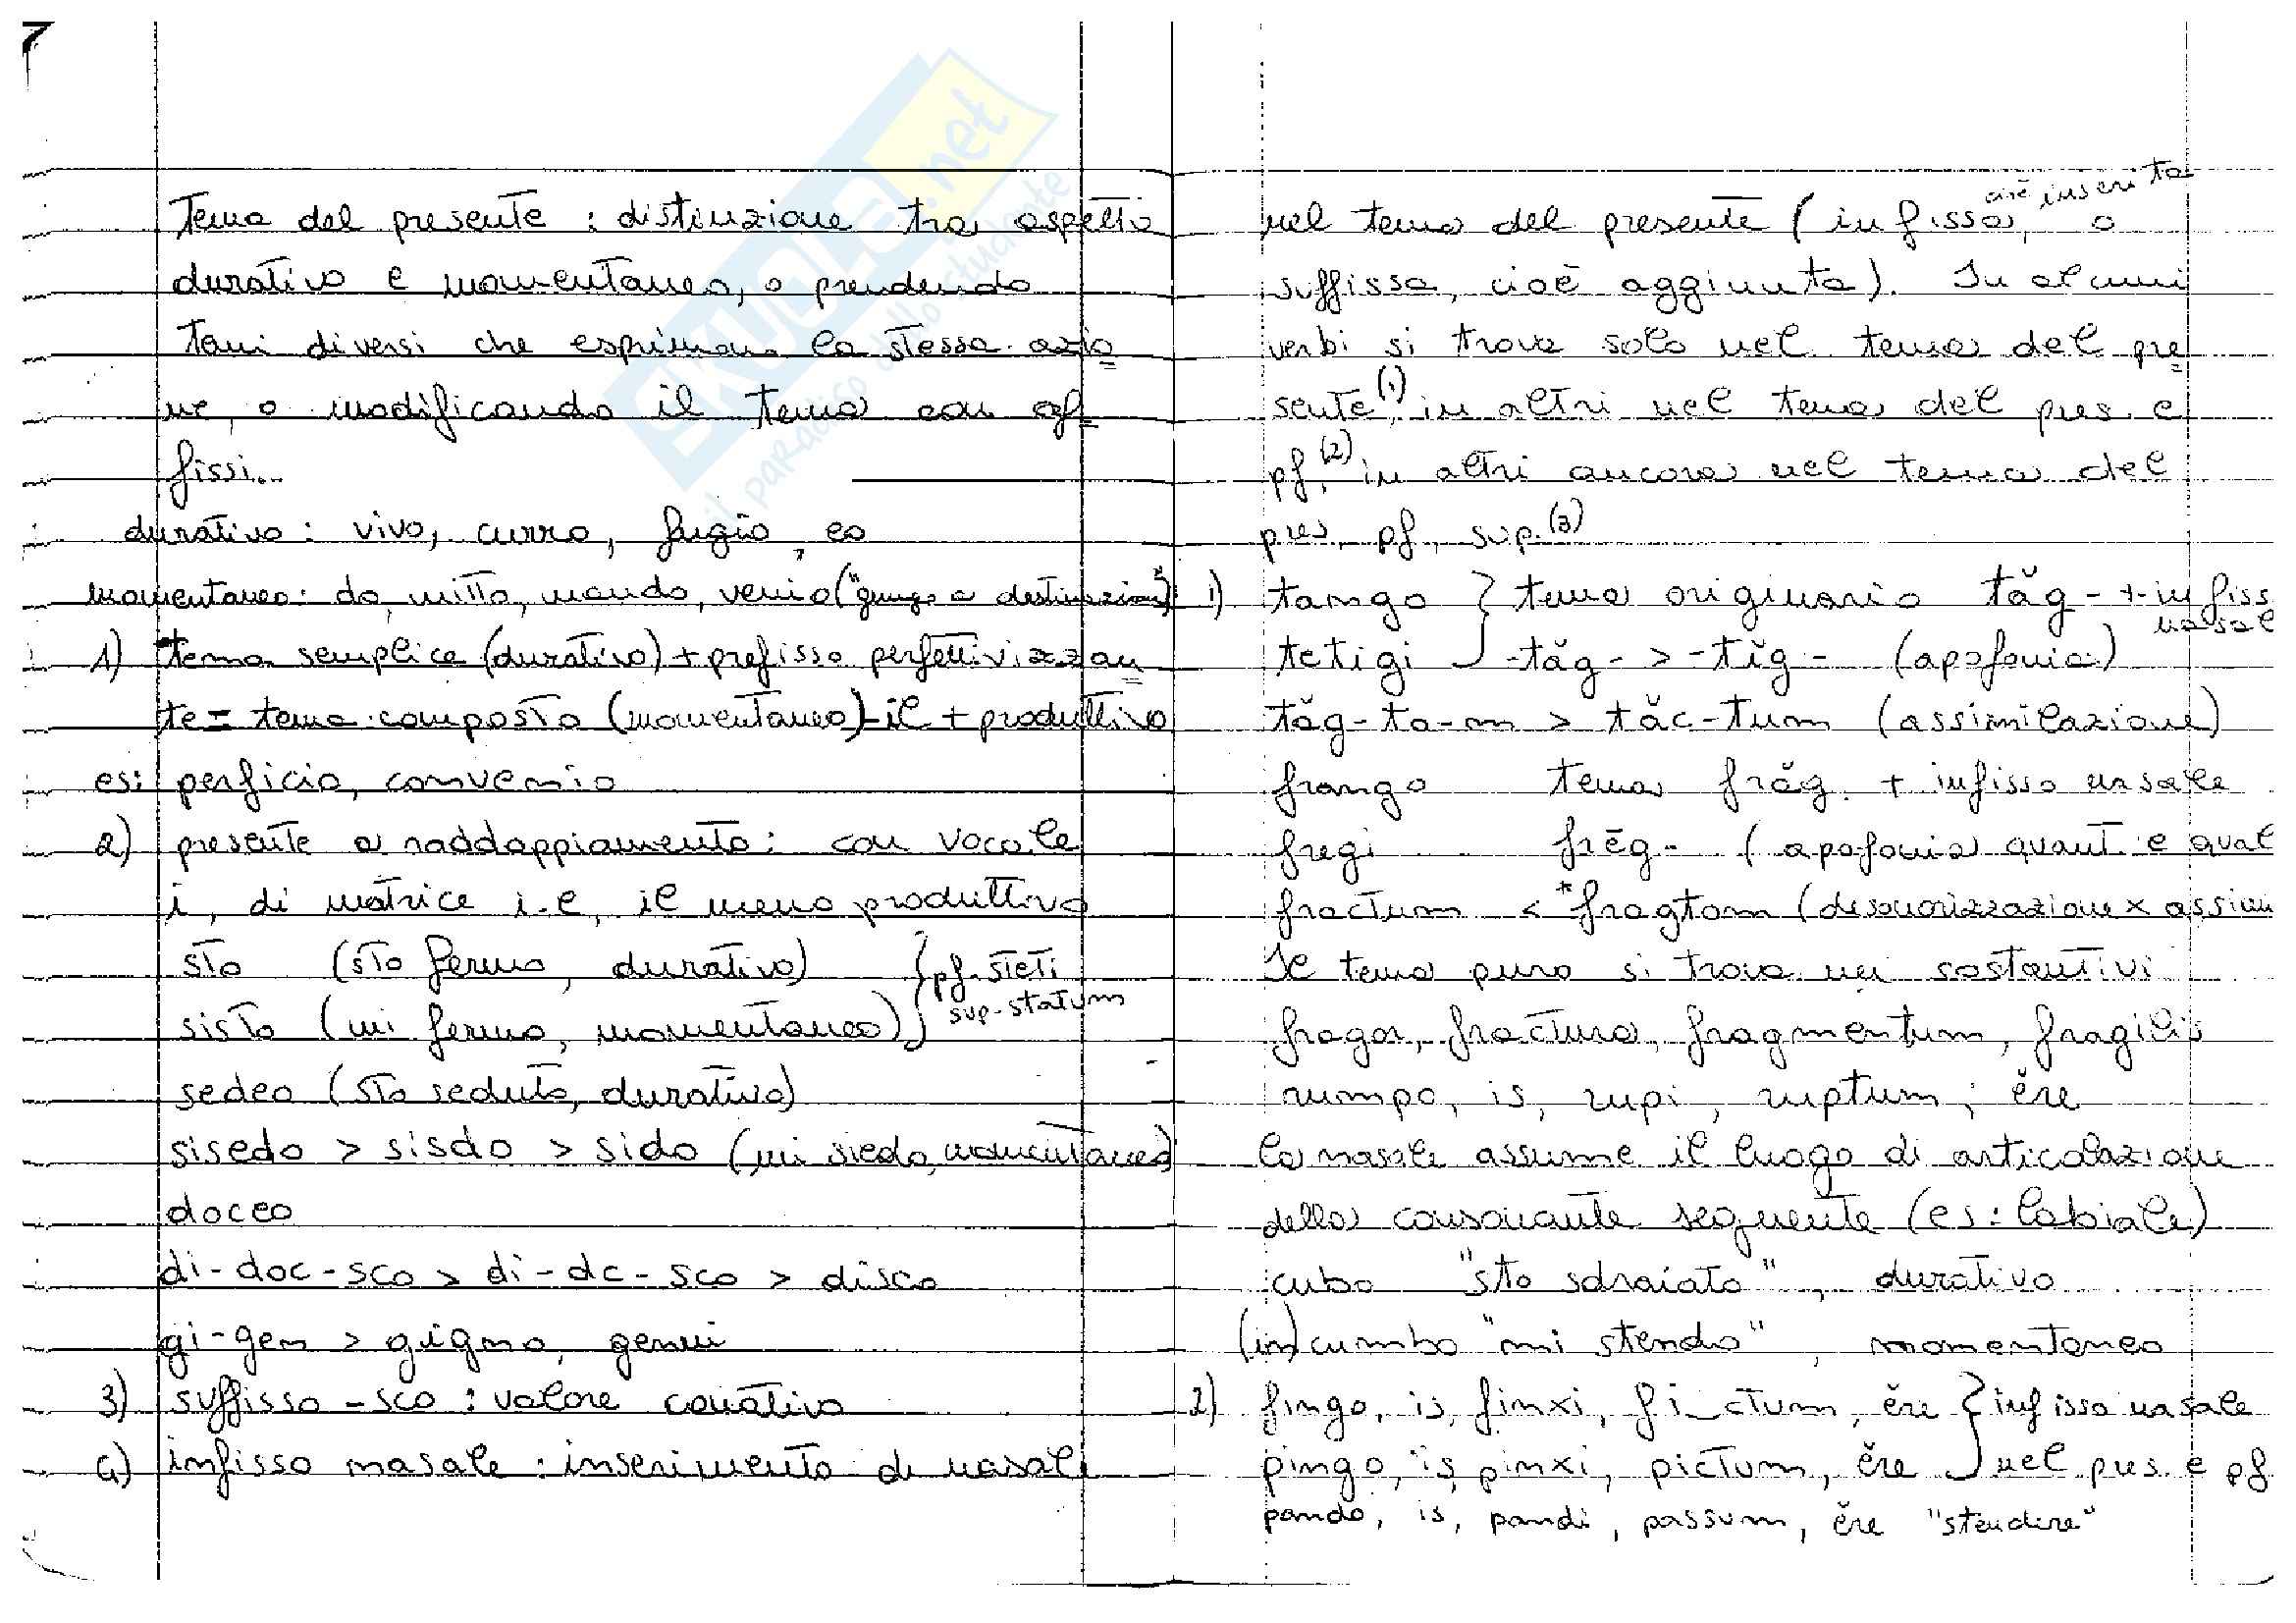 Tema del presente : distinzione tra aspetto
durativo e momentaneo, o prendendo
temi diversi che esprimono la stessa azio
ne, o modificando il tema con af
fissi..
durativo : vivo, curro, fugio, eo
momentaneo: do, mitto, mando, venio ("giungo a destinazione")
1) tema semplice (durativo) + prefisso perfettivizzan
te = tema composto (momentaneo) - il + produttivo
es: perficio, convenio
2) presente a raddoppiamento : con vocale
i, di matrice i.e, il meno produttivo
sto (sto fermo, durativo) } pf. steti
sisto (mi fermo, momentaneo) } sup. statum
sedeo (sto seduto, durativo)
sisedo > sisdo > sido (mi siedo, momentaneo)
doceo
di-doc-sco > di-dc-sco > disco
gi-gen > gigno, genui
3) suffisso -sco : valore conativo
4) infisso nasale : inserimento di nasale
nel tema del presente (infissa, cioè inserita o
suffissa, cioè aggiunta). In alcuni
verbi si trova solo nel tema del pre
sente,(1) in altri nel tema del pres. e
pf,(2) in altri ancora nel tema del
pres, pf, sup.(3)
1) tango } tema originario tăg- + infiss nasal
tetigi } -tăg- > -tĭg- (apofonia)
tăg-to-m > tăc-tum (assimilazione)
frango tema frăg. + infisso nasale
fregi frēg- (apofonia quant. e qual
fractum < *fragtom (desonorizzazione x assim
Il tema puro si trova nei sostantivi
fragor, fractura, fragmentum, fragilis
rumpo, is, rupi, ruptum, ĕre
la nasale assume il luogo di articolazione
della consonante seguente (es: labiale)
cubo "sto sdraiato", durativo
(in)cumbo "mi stendo", momentaneo
2) fingo, is, finxi, fi_ctum, ĕre } infisso nasale
pingo, is, pinxi, pictum, ĕre } nel pres. e pf
pando, is, pandi, passum, ĕre "stendere"
SKUOLA.net
il paradiso dello studente